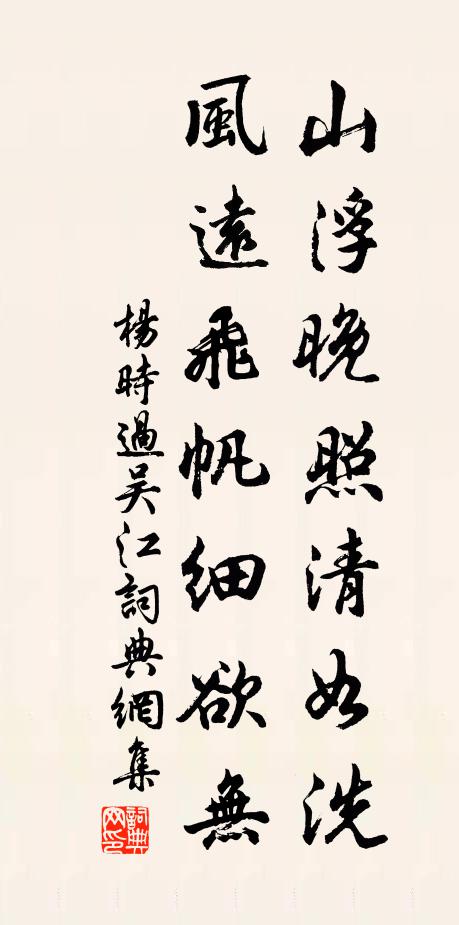 山浮晚照清如洗
風遠飛帆細欲無
楊時過吴江詞典網集
詞典網印